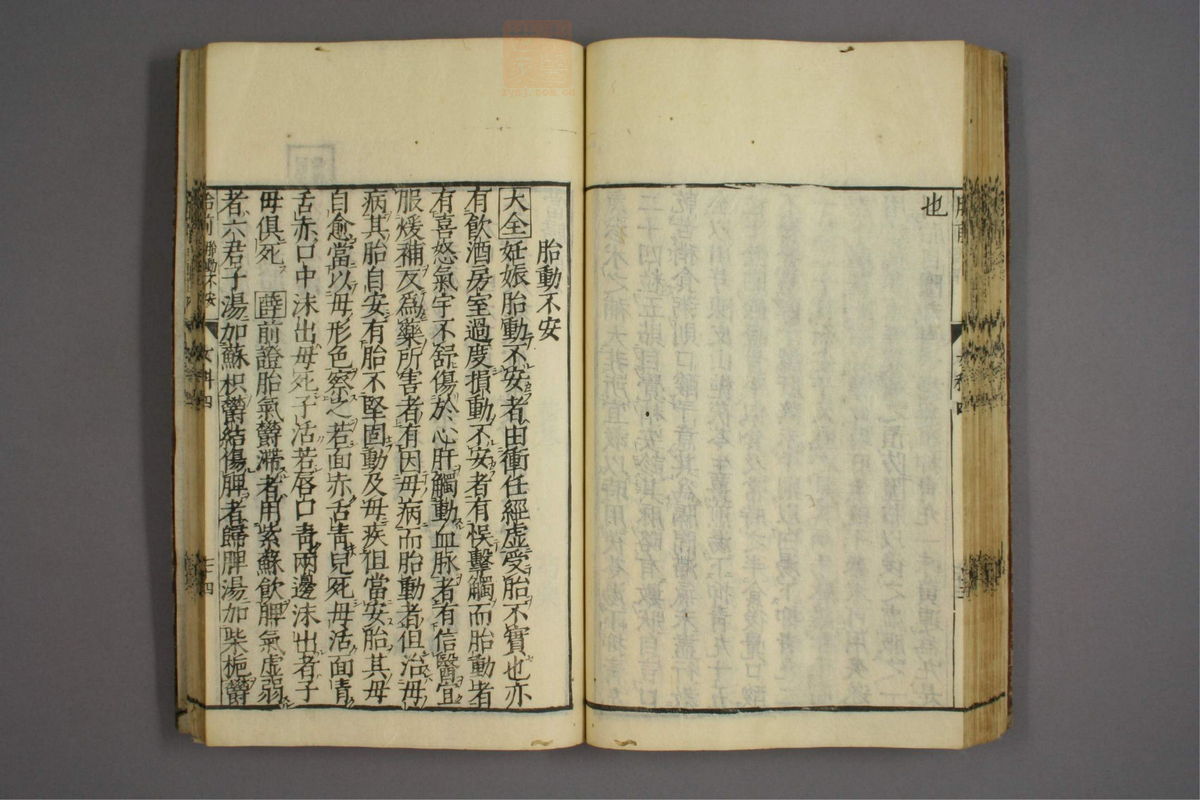 也
胎動不安
大全妊娠胎動不安者由衝任經虛受胎不實也亦
有飲酒房室過度損動不安者有悞擊觸而胎動者
有喜怒氣宇不舒傷於心肝觸動血脉者有信醫宜
服煖補反為藥所害者有因毋病而胎動者但治毋
病其胎自安有胎不堅固動及毋疾但當安胎其毋
自愈當以毋形色察之若面赤舌青兒死毋活面青
舌赤口中沫出毋死子活若唇口青兩邊沫出者子
毋俱死 薛前證胎氣鬱滯者用紫蘇飲脾氣虛弱
者六君子湯加蘇枳鬱結傷脾者歸脾湯加柴梔鬱
胎動不安
女科四